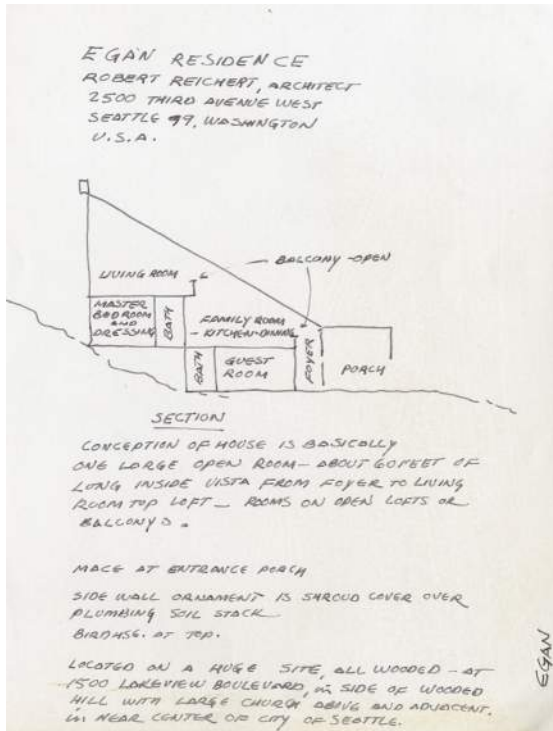 EGAN RESIDENCE
ROBERT REICHERT, ARCHITECT
2500 THIRD AVENUE WEST
SEATTLE 99, WASHINGTON
U.S.A.
LIVING ROOM
BALCONY - OPEN
MASTER
BEDROOM
AND
DRESSING
BATH
FAMILY ROOM
- KITCHEN-DINING
BATH
GUEST
ROOM
FOYER
PORCH
SECTION
CONCEPTION OF HOUSE IS BASICALLY
ONE LARGE OPEN ROOM - ABOUT 60 FEET OF
LONG INSIDE VISTA FROM FOYER TO LIVING
ROOM TOP LOFT - ROOMS ON OPEN LOFTS OR
BALCONYS.
MACE AT ENTRANCE PORCH
SIDE WALL ORNAMENT IS SHROUD COVER OVER
PLUMBING SOIL STACK
BIRDHSG. AT TOP.
LOCATED ON A HUGE SITE, ALL WOODED - AT
1500 LAKEVIEW BOULEVARD, in SIDE OF WOODED
HILL WITH LARGE CHURCH ABOVE AND ADJACENT.
in NEAR CENTER OF CITY OF SEATTLE.
EGAN